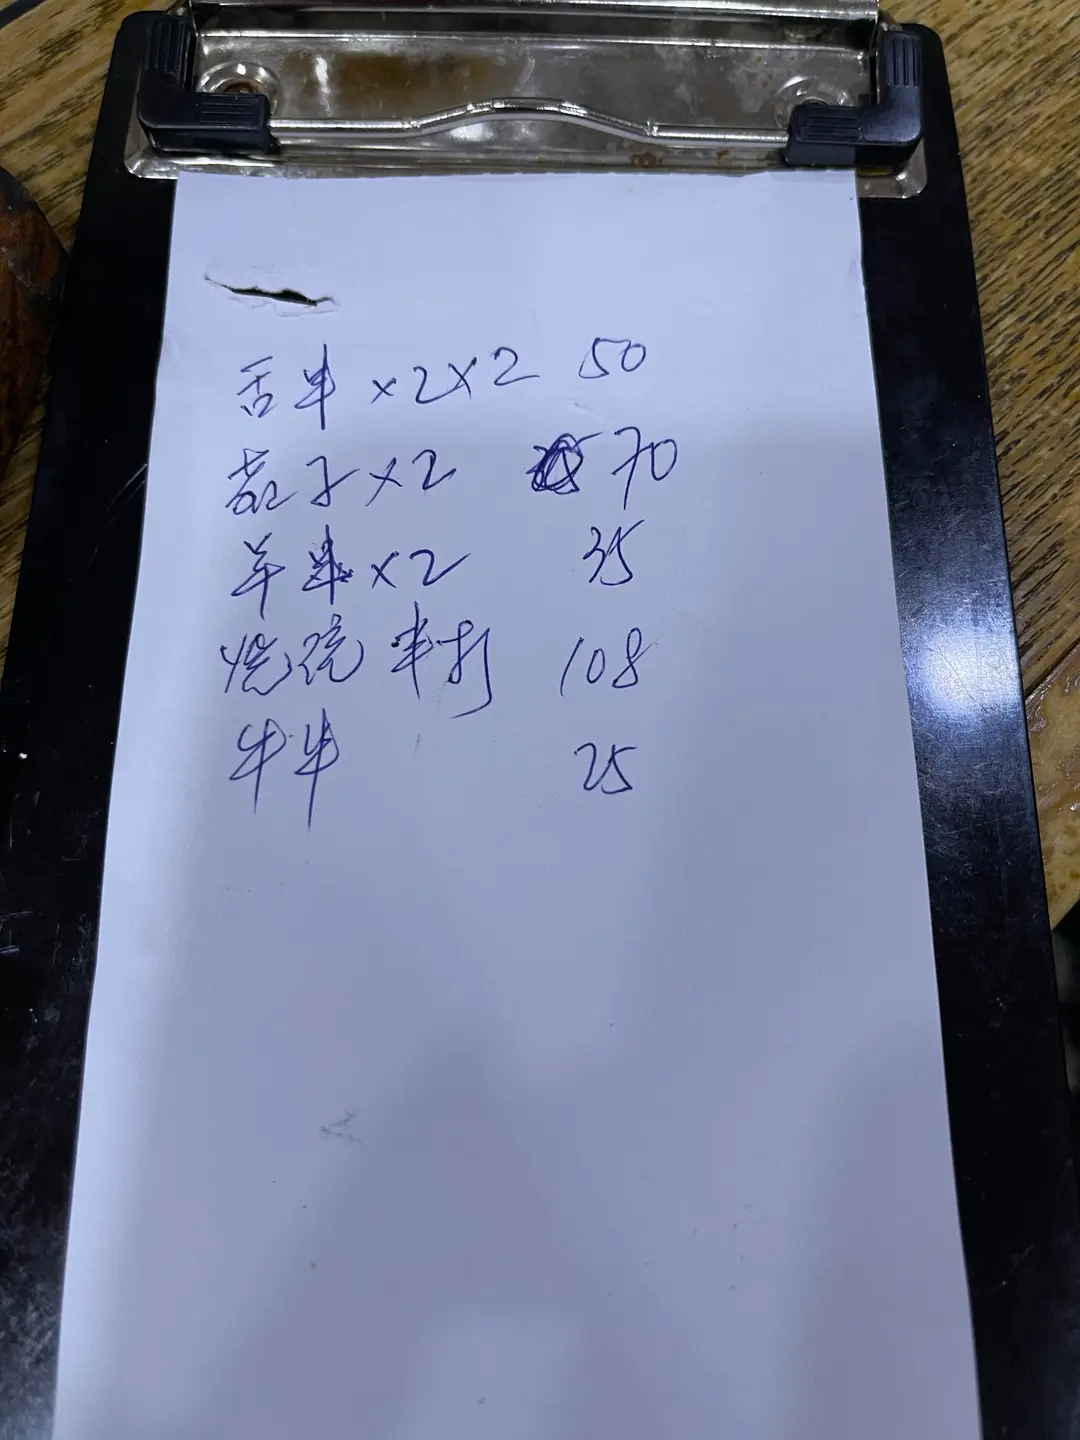 舌串 ×2×2 50
茄子×2 70
羊串×2 35
烧 半打 108
牛串 25